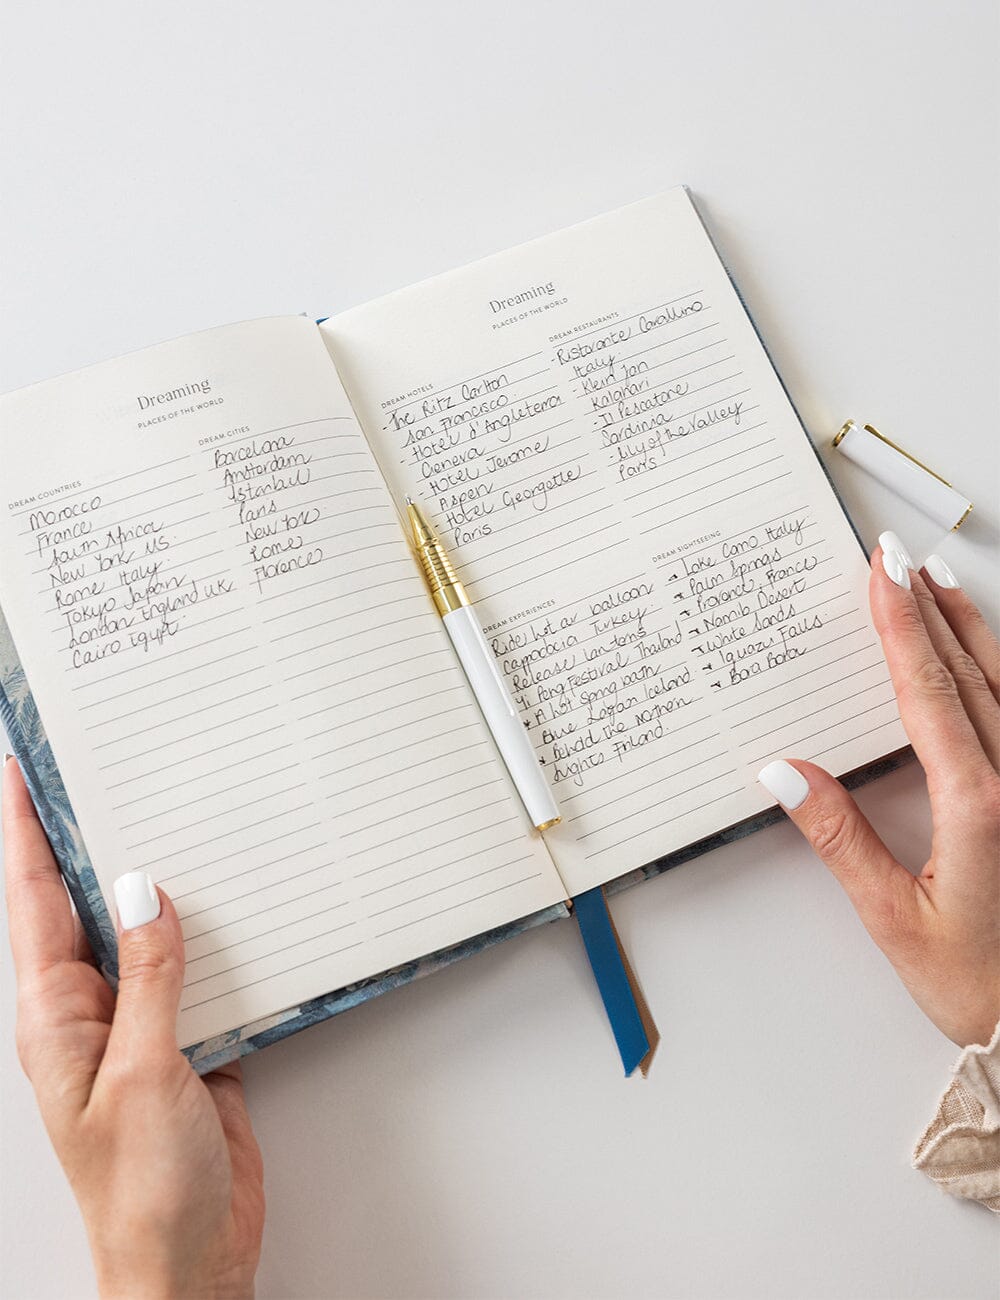 Dreaming
PLACES OF THE WORLD
DREAM COUNTRIES
Morocco
France
South Africa
New York US.
Rome Italy
Tokyo Japan
London England UK
Cairo Egypt.
DREAM CITIES
Barcelona
Amsterdam
Istanbul
Paris
New York
Rome
Florence
Dreaming
PLACES OF THE WORLD
DREAM HOTELS
- The Ritz Carlton
San Francisco.
- Hotel d'Angleterre
Geneva
- Hotel Jerome
Aspen
- Hotel Georgette
Paris
DREAM RESTAURANTS
- Ristorante Cavallino
Italy.
- Klein Jan
Kalahari
- Il Pescatore
Sardinia
- Lily of the Valley
Paris
DREAM EXPERIENCES
Ride hot air balloon
Cappadocia Turkey.
Release lanterns
Yi Peng Festival Thailand
* A hot spring bath
Blue Lagoon Iceland
* Behold the Northern
Lights Finland.
DREAM SIGHTSEEING
* Lake Como Italy
* Palm Springs
* Provence, France
* Namib Desert
* White Sands
* Iguazu Falls.
* Bora Bora